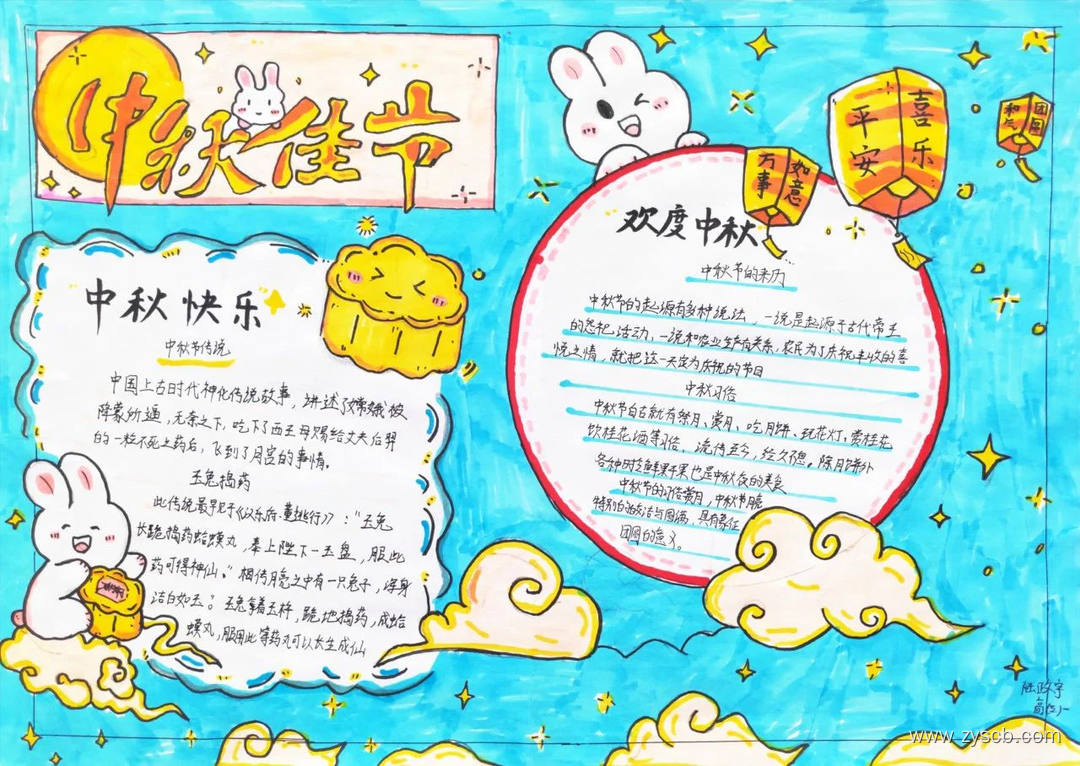 中秋佳节
中秋快乐
中秋节传说
中国上古时代神化传说故事，讲述了嫦娥被
逄蒙所逼，无奈之下，吃下了西王母赐给丈夫后羿
的一粒不死之药后，飞到了月宫的事情。
玉兔捣药
此传说最早见于《汉乐府·董逃行》："玉兔
长跪捣药蛤蟆丸，奉上陛下一玉盘，服此
药可得神仙。"相传月亮之中有一只兔子，浑身
洁白如玉。玉兔拿着玉杵，跪地捣药，成蛤
蟆丸，服用此等药丸可以长生成仙
欢度中秋
中秋节的来历
中秋节的起源有多种说法，一说是起源于古代帝王
的祭祀活动，一说和农业生产有关系，农民为了庆祝丰收的喜
悦之情，就把这一天定为庆祝的节日
中秋习俗
中秋节自古就有祭月、赏月、吃月饼、玩花灯、赏桂花
饮桂花酒等习俗，流传至今，经久不息。除月饼外
各种时令鲜果干果也是中秋夜的美食
中秋节的习俗赏月，中秋节
特别的 与圆满，具有象征
团圆的意义。
万事
如意
平安
喜乐
团圆
www.zyscb.com